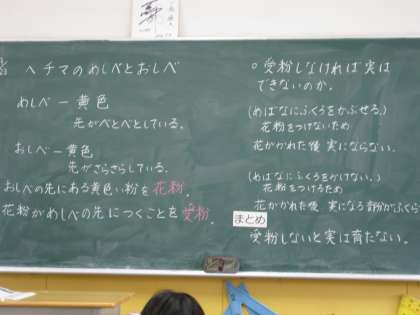 ヘチマのめしべとおしべ
めしべー黄色
先がべとべとしている。
おしべー黄色
先がさらさらしている。
おしべの先にある黄色い粉を花粉。
花粉がめしべの先につくことを受粉。
○受粉しなければ実は
できないのか。
(めばなにふくろをかぶせる。)
花粉をつけないため
花がかれた後 実にならない。
(めばなにふくろをかけない。)
花粉をつけるため
花がかれた後 実になる部分がふくら
まとめ
受粉しないと実は育たない。